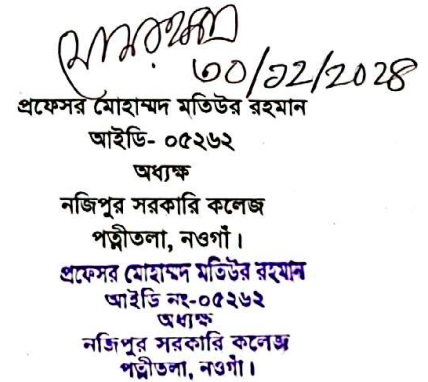 ৩০/১২/২০২৪
প্রফেসর মোহাম্মদ মতিউর রহমান
আইডি- ০৫২৬২
অধ্যক্ষ
নজিপুর সরকারি কলেজ
পত্নীতলা, নওগাঁ।
প্রফেসর মোহাম্মদ মতিউর রহমান
আইডি নং-০৫২৬২
অধ্যক্ষ
নজিপুর সরকারি কলেজ
পত্নীতলা, নওগাঁ।